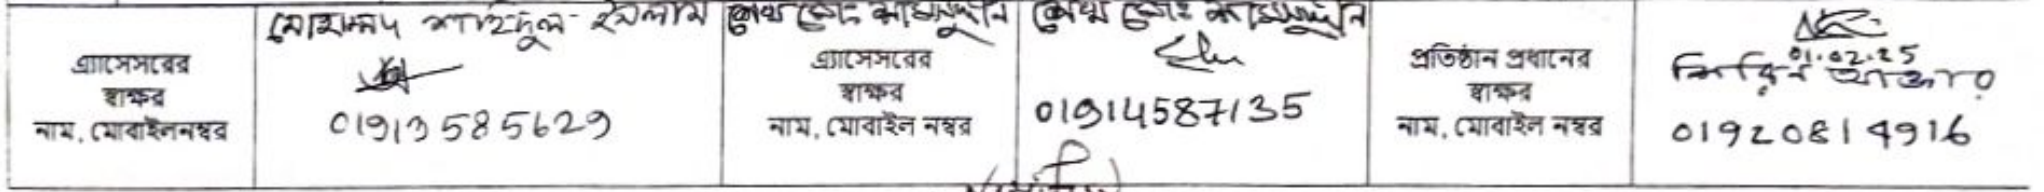 মোহাম্মদ শাহিদুল ইসলাম
এ্যাসেসরের
স্বাক্ষর
নাম, মোবাইলনম্বর
01913585629
শেখ মোঃ কামরুদ্দীন
এ্যাসেসরের
স্বাক্ষর
নাম, মোবাইল নম্বর
শেখ মোঃ কামরুদ্দীন
01914587135
প্রতিষ্ঠান প্রধানের
স্বাক্ষর
নাম, মোবাইল নম্বর
01.02.25
শিরিন আক্তার
01920814916